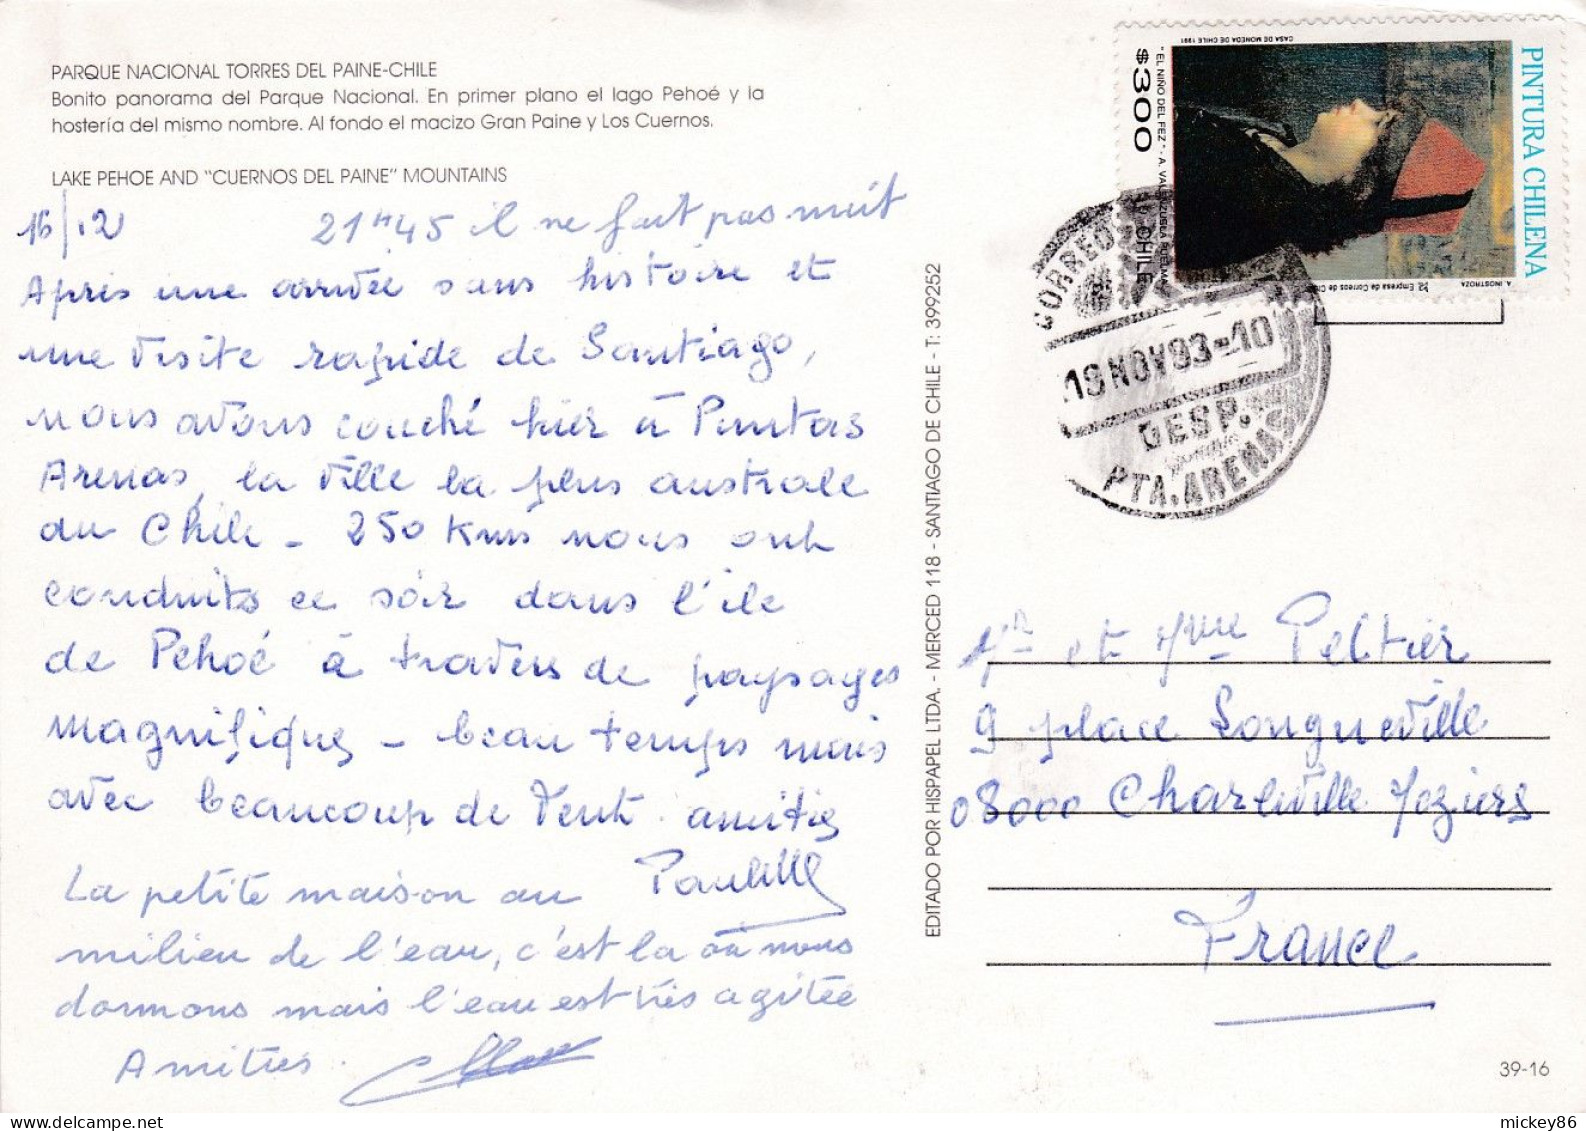 PARQUE NACIONAL TORRES DEL PAINE-CHILE
Bonito panorama del Parque Nacional. En primer plano el lago Pehoé y la
hostería del mismo nombre. Al fondo el macizo Gran Paine y Los Cuernos.
LAKE PEHOE AND "CUERNOS DEL PAINE" MOUNTAINS
16/12 21H45 il ne fait pas nuit
Après une arrivée sans histoire et
une visite rapide de Santiago,
nous avons couché hier à Puntas
Arenas, la ville la plus australe
du Chili - 250 Kms nous ont
conduits ce soir dans l'ile
de Pehoé à travers de paysages
magnifiques - beau temps mais
avec beaucoup de vent. amitiés
Paulette
La petite maison au
milieu de l'eau, c'est la où nous
dormons mais l'eau est très agitée
Amitiés.
EDITADO POR HISPAPEL LTDA. - MERCED 118 - SANTIAGO DE CHILE - T: 399252
PINTURA CHILENA
CASA DE MONEDA DE CHILE 1991
$300
"EL NIÑO DEL FEZ" - A. VALENZUELA PUELMA
CHILE
A. INOSTROZA
Empresa de Correos de Chile
CORREOS
19 NOV 93-10
DESP.
PTA. ARENAS
Mr et Mme Peltier
9 place Longueville
08000 Charleville Mézières
France
39-16
mickey86